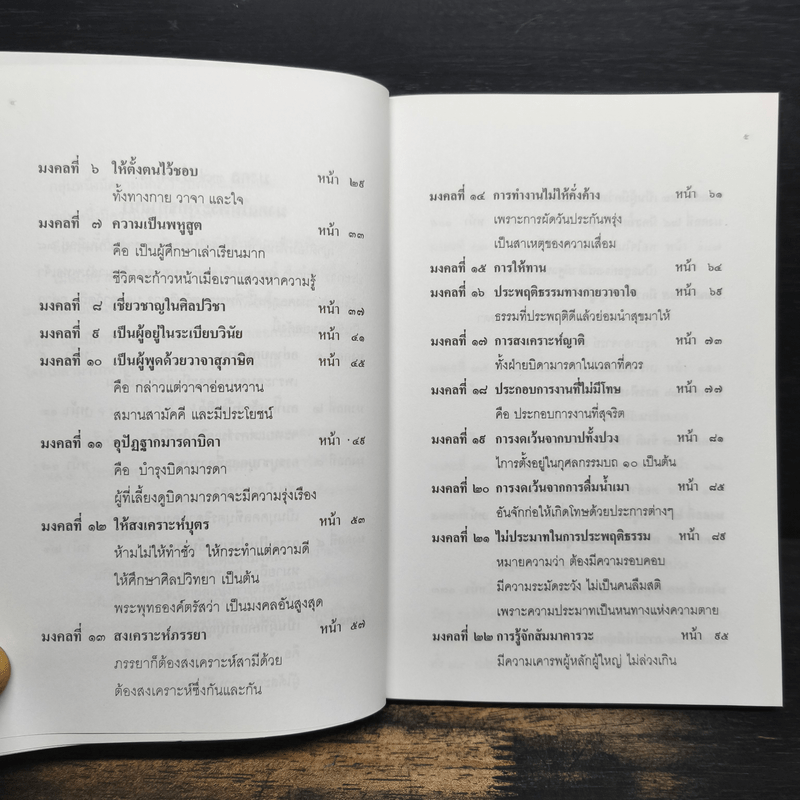 มงคลที่ ๖ ให้ตั้งตนไว้ชอบ หน้า ๒๙
ทั้งทางกาย วาจา และใจ
มงคลที่ ๗ ความเป็นพหูสูต หน้า ๓๓
คือ เป็นผู้ศึกษาเล่าเรียนมาก
ชีวิตจะก้าวหน้าเมื่อเราแสวงหาความรู้
มงคลที่ ๘ เชี่ยวชาญในศิลปวิชา หน้า ๓๗
มงคลที่ ๙ เป็นผู้อยู่ในระเบียบวินัย หน้า ๔๑
มงคลที่ ๑๐ เป็นผู้พูดด้วยวาจาสุภาษิต หน้า ๔๕
คือ กล่าวแต่วาจาอ่อนหวาน
สมานสามัคคี และมีประโยชน์
มงคลที่ ๑๑ อุปัฏฐากมารดาบิดา หน้า ๔๙
คือ บำรุงบิดามารดา
ผู้ที่เลี้ยงดูบิดามารดาจะมีความรุ่งเรือง
มงคลที่ ๑๒ ให้สงเคราะห์บุตร หน้า ๕๓
ห้ามไม่ให้ทำชั่ว ให้กระทำแต่ความดี
ให้ศึกษาศิลปวิทยา เป็นต้น
พระพุทธองค์ตรัสว่า เป็นมงคลอันสูงสุด
มงคลที่ ๑๓ สงเคราะห์ภรรยา หน้า ๕๗
ภรรยาก็ต้องสงเคราะห์สามีด้วย
ต้องสงเคราะห์ซึ่งกันและกัน
มงคลที่ ๑๔ การทำงานไม่ให้คั่งค้าง หน้า ๖๑
เพราะการผัดวันประกันพรุ่ง
เป็นสาเหตุของความเสื่อม
มงคลที่ ๑๕ การให้ทาน หน้า ๖๔
มงคลที่ ๑๖ ประพฤติธรรมทางกายวาจาใจ หน้า ๖๙
ธรรมที่ประพฤติดีแล้วย่อมนำสุขมาให้
มงคลที่ ๑๗ การสงเคราะห์ญาติ หน้า ๗๓
ทั้งฝ่ายบิดามารดาในเวลาที่ควร
มงคลที่ ๑๘ ประกอบการงานที่ไม่มีโทษ หน้า ๗๗
คือ ประกอบการงานที่สุจริต
มงคลที่ ๑๙ การงดเว้นจากบาปทั้งปวง หน้า ๘๑
ไการตั้งอยู่ในกุศลกรรมบถ ๑๐ เป็นต้น
มงคลที่ ๒๐ การงดเว้นจากการดื่มน้ำเมา หน้า ๘๕
อันจักก่อให้เกิดโทษด้วยประการต่างๆ
มงคลที่ ๒๑ ไม่ประมาทในการประพฤติธรรม หน้า ๘๙
หมายความว่า ต้องมีความรอบคอบ
มีความระมัดระวัง ไม่เป็นคนลืมสติ
เพราะความประมาทเป็นหนทางแห่งความตาย
มงคลที่ ๒๒ การรู้จักสัมมาคารวะ หน้า ๙๕
มีความเคารพผู้หลักผู้ใหญ่ ไม่ล่วงเกิน